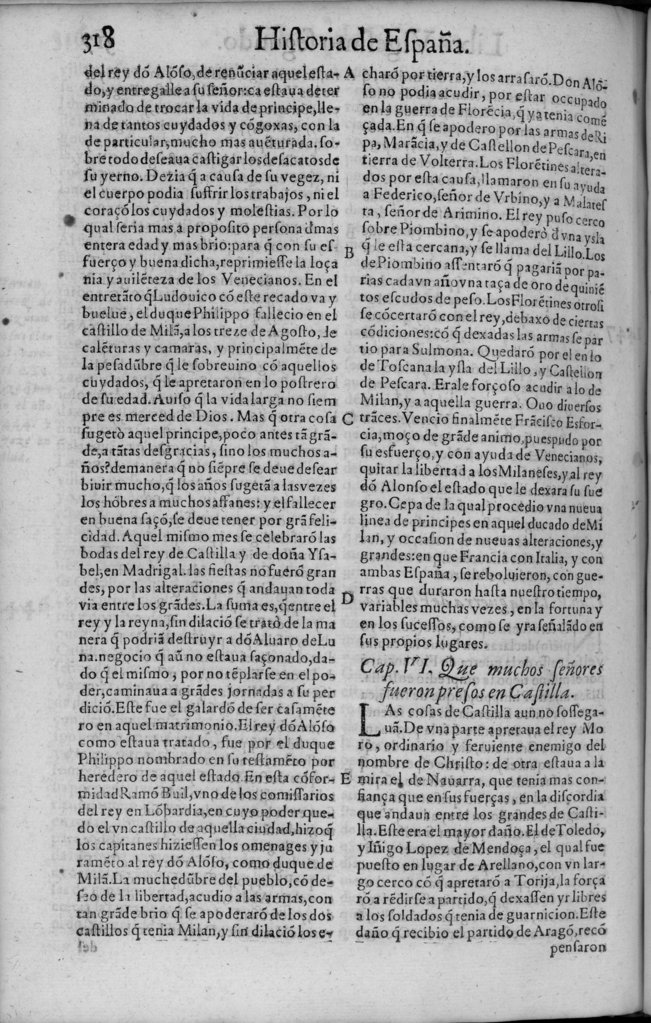 318
Historia de España.
del rey dõ Alõso, de renũciar aquel esta-
do, y entregalle a su señor: ca estaua deter
minado de trocar la vida de principe, lle-
na de tantos cuydados y cõgoxas, con la
de particular, mucho mas auẽturada. so-
bre todo deseaua castigar los desacatos de
su yerno. Dezia q̃ a causa de su vegez, ni
el cuerpo podia suffrir los trabajos, ni el
coraçõ los cuydados y molestias. Por lo
qual seria mas a proposito persona d̃ mas
entera edad y mas brio: para q̃ con su es
fuerço y buena dicha, reprimiesse la loça
nia y auilẽteza de los Venecianos. En el
entretãto q̃ Ludouico cõ este recado va y
buelue, el duque Philippo fallecio en el
castillo de Milã, a los treze de Agosto, de
calẽturas y camaras, y principalmẽte de
la pesadũbre q̃ le sobreuino cõ aquellos
cuydados, q̃ le apretaron en lo postrero
de su edad. Auiso q̃ la vida larga no siem
pre es merced de Dios. Mas q̃ otra cosa
sugetò aquel principe, poco antes tã grã-
de, a tãtas desgracias, sino los muchos a-
ños? de manera q̃ no siẽpre se deue desear
biuir mucho, q̃ los años sugetã a las vezes
los hõbres a muchos affanes: y el fallecer
en buena saçõ, se deue tener por grã feli-
cidad. Aquel mismo mes se celebrarõ las
bodas del rey de Castilla y de doña Ysa-
bel, en Madrigal. las fiestas no fuerõ gran
des, por las alteraciones q̃ andauan toda
via entre los grãdes. La suma es, q̃ entre el
rey y la reyna, sin dilaciõ se tratò de la ma
nera q̃ podriã destruyr a dõ Aluaro de Lu
na. negocio q̃ aũ no estaua saçonado, da-
do q̃ el mismo, por no tẽplarse en el po-
der, caminaua a grãdes jornadas a su per
diciõ. Este fue el galardõ de ser casamẽte
ro en aquel matrimonio. El rey dõ Alõso
como estaua tratado, fue por el duque
Philippo nombrado en su testamẽto por
heredero de aquel estado. En esta cõfor-
midad Ramõ Buil, vno de los comissarios
del rey en Lõbardia, en cuyo poder que-
do el vn castillo de aquella ciudad, hizo q̃
los capitanes hiziessen los omenages y ju
ramẽto al rey dõ Alõso, como duque de
Milã. La muchedũbre del pueblo, cõ de-
seo de la libertad, acudio a las armas, con
tan grãde brio q̃ se apoderarõ de los dos
castillos q̃ tenia Milan, y sin dilaciõ los e-
A
B
C
D
E
charõ por tierra, y los arrasarõ. Don Alõ-
so no podia acudir, por estar occupado
en la guerra de Florẽcia, q̃ ya tenia comẽ
çada. En q̃ se apodero por las armas de Ri
pa, Marãcia, y de Castellon de Pescara, en
tierra de Volterra. Los Florẽtines altera-
dos por esta causa, llamaron en su ayuda
a Federico, señor de Vrbino, y a Malates
ta, señor de Arimino. El rey puso cerco
sobre Piombino, y se apoderò d̃ vna ysla
q̃ le esta cercana, y se llama del Lillo. Los
de Piombino assentarõ q̃ pagariã por pa-
rias cada vn año vna taça de oro de quiniẽ
tos escudos de peso. Los Florẽtines otrosi
se cõcertarõ con el rey, debaxo de ciertas
cõdiciones: cõ q̃ dexadas las armas se par
tio para Sulmona. Quedarõ por el en lo
de Toscana la ysla del Lillo, y Castellon
de Pescara. Erale forçoso acudir a lo de
Milan, y a aquella guerra. Ouo diuersos
trãces. Vencio finalmẽte Frãcisco Esfor-
cia, moço de grãde animo, pues pudo por
su esfuerço, y con ayuda de Venecianos,
quitar la libertad a los Milaneses, y al rey
dõ Alonso el estado que le dexara su sue
gro. Cepa de la qual procedio vna nueua
linea de principes en aquel ducado de Mi
lan, y occasion de nueuas alteraciones, y
grandes: en que Francia con Italia, y con
ambas España, se reboluieron, con gue-
rras que duraron hasta nuestro tiempo,
variables muchas vezes, en la fortuna y
en los sucessos, como se yra señalãdo en
sus propios lugares.
Cap. VI. Que muchos señores
fueron presos en Castilla.
LAs cosas de Castilla aun no sossega-
uã. De vna parte apretaua el rey Mo
ro, ordinario y feruiente enemigo del
nombre de Christo: de otra estaua a la
mira el de Nauarra, que tenia mas con-
fiança que en sus fuerças, en la discordia
que andaua entre los grandes de Casti-
lla. Este era el mayor daño. El de Toledo,
y Iñigo Lopez de Mendoça, el qual fue
puesto en lugar de Arellano, con vn lar-
go cerco cõ q̃ apretarõ a Torija, la força
rõ a rẽdirse a partido, q̃ dexassen yr libres
a los soldados q̃ tenia de guarnicion. Este
daño q̃ recibio el partido de Aragõ, recõ
pensaron